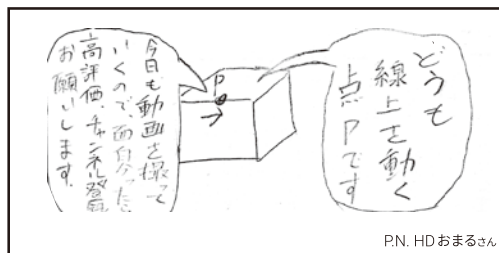 どうも
線上を動く
点Pです
P
今日も動画を撮って
いくので、面白かったら
高評価、チャンネル登録
お願いします。
P.N. HDおまるさん